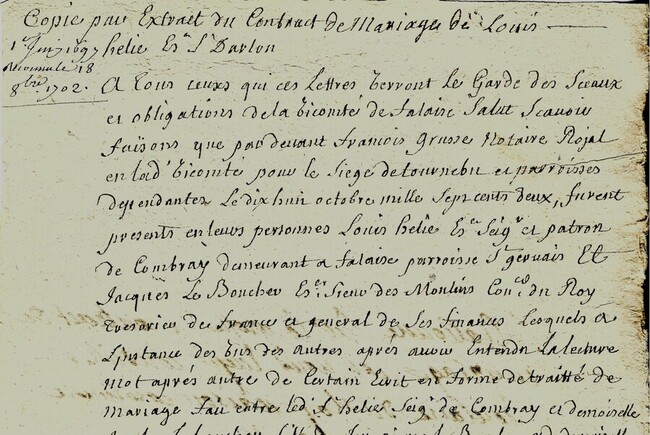 Copie par Extrait du Contract de Mariage de Louis
1r Juin 1697 helie Esr Sr Darlon
Reconnule 18
8bre 1702.
A Tous ceux qui ces Lettres verront Le Garde des Sceaux
et obligations de la vicomté de falaise Salut Scavoir
faisons que par devant francois Grusse Notaire Rojal
en lad' vicomté pour le Siege de tournebu et parroisses
dependantes Le dix huit octobre mille Sept cents deux, furent
presents en leurs personnes Louis helie Esr Seigr et patron
de Combray demeurant a falaise parroisse St gervais Et
Jacques Le Boucher Esr Sieur des Moulins Coner du Roy
tresorier de france et general de Ses finances Lesquels a
L'instance des uns des autres aprés avoir Entendu La lecture
mot aprés autre de Certain Ecrit en forme de traitté de
mariage fait entre led' Sr helie Seigr de Combray et demoiselle